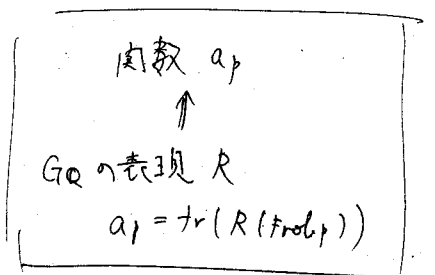 関数 ap
↑
GQ の表現 R
ap = tr(R(Frobp))